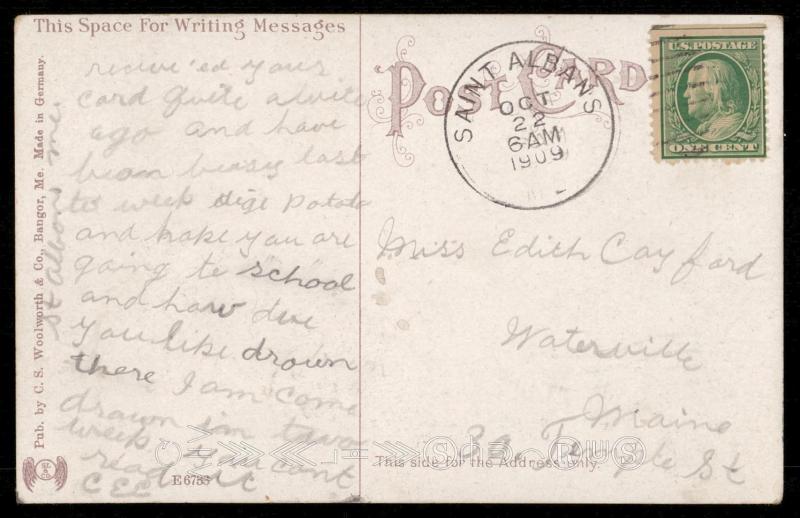 This Space For Writing Messages
reciev'ed your
card quite a wile
ago and have
bean beasy last
to week dige potato
and hope you are
going to school
and how due
you like drown
there I am come
drawn in two
week you cant
read it
C E C
St albans me.
Pub. by C. S. Woolworth & Co., Bangor, Me. Made in Germany.
E 6735
POST CARD
SAINT ALBANS
OCT
22
6AM
1909
U.S. POSTAGE
ONE CENT
Miss Edith Cayford
Waterville
Maine
32 Temple St
This side for the Address only.